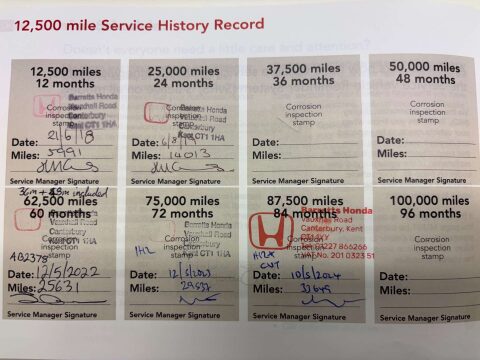 12,500 mile Service History Record
12,500 miles
12 months
Barretts Honda
Vauxhall Road
Canterbury
Kent CT1 1HA
Corrosion
inspection
stamp
Date: 21/6/18
Miles: 5991
Service Manager Signature
25,000 miles
24 months
Barretts Honda
Vauxhall Road
Canterbury
Kent CT1 1HA
Corrosion
inspection
stamp
Date: 6/8/19
Miles: 14013
Service Manager Signature
37,500 miles
36 months
Corrosion
inspection
stamp
Date:
Miles:
Service Manager Signature
50,000 miles
48 months
Corrosion
inspection
stamp
Date:
Miles:
Service Manager Signature
36m + 48m included
62,500 miles
60 months
Barretts Honda
Vauxhall Road
Canterbury
Kent CT1 1HA
Corrosion
inspection
stamp
Date: 12/5/2022
Miles: 25631
Service Manager Signature
75,000 miles
72 months
Barretts Honda
Vauxhall Road
Canterbury
Kent CT1 1HA
Corrosion
inspection
stamp
Date:
Miles:
Service Manager Signature
87,500 miles
84 months
Barretts Honda
Vauxhall Road
Canterbury, Kent
CT1 1HA
Tel: 01227 866266
VAT No. 201 0323 51
Corrosion
inspection
stamp
Date: 10/5/2024
Miles:
Service Manager Signature
100,000 miles
96 months
Corrosion
inspection
stamp
Date:
Miles:
Service Manager Signature